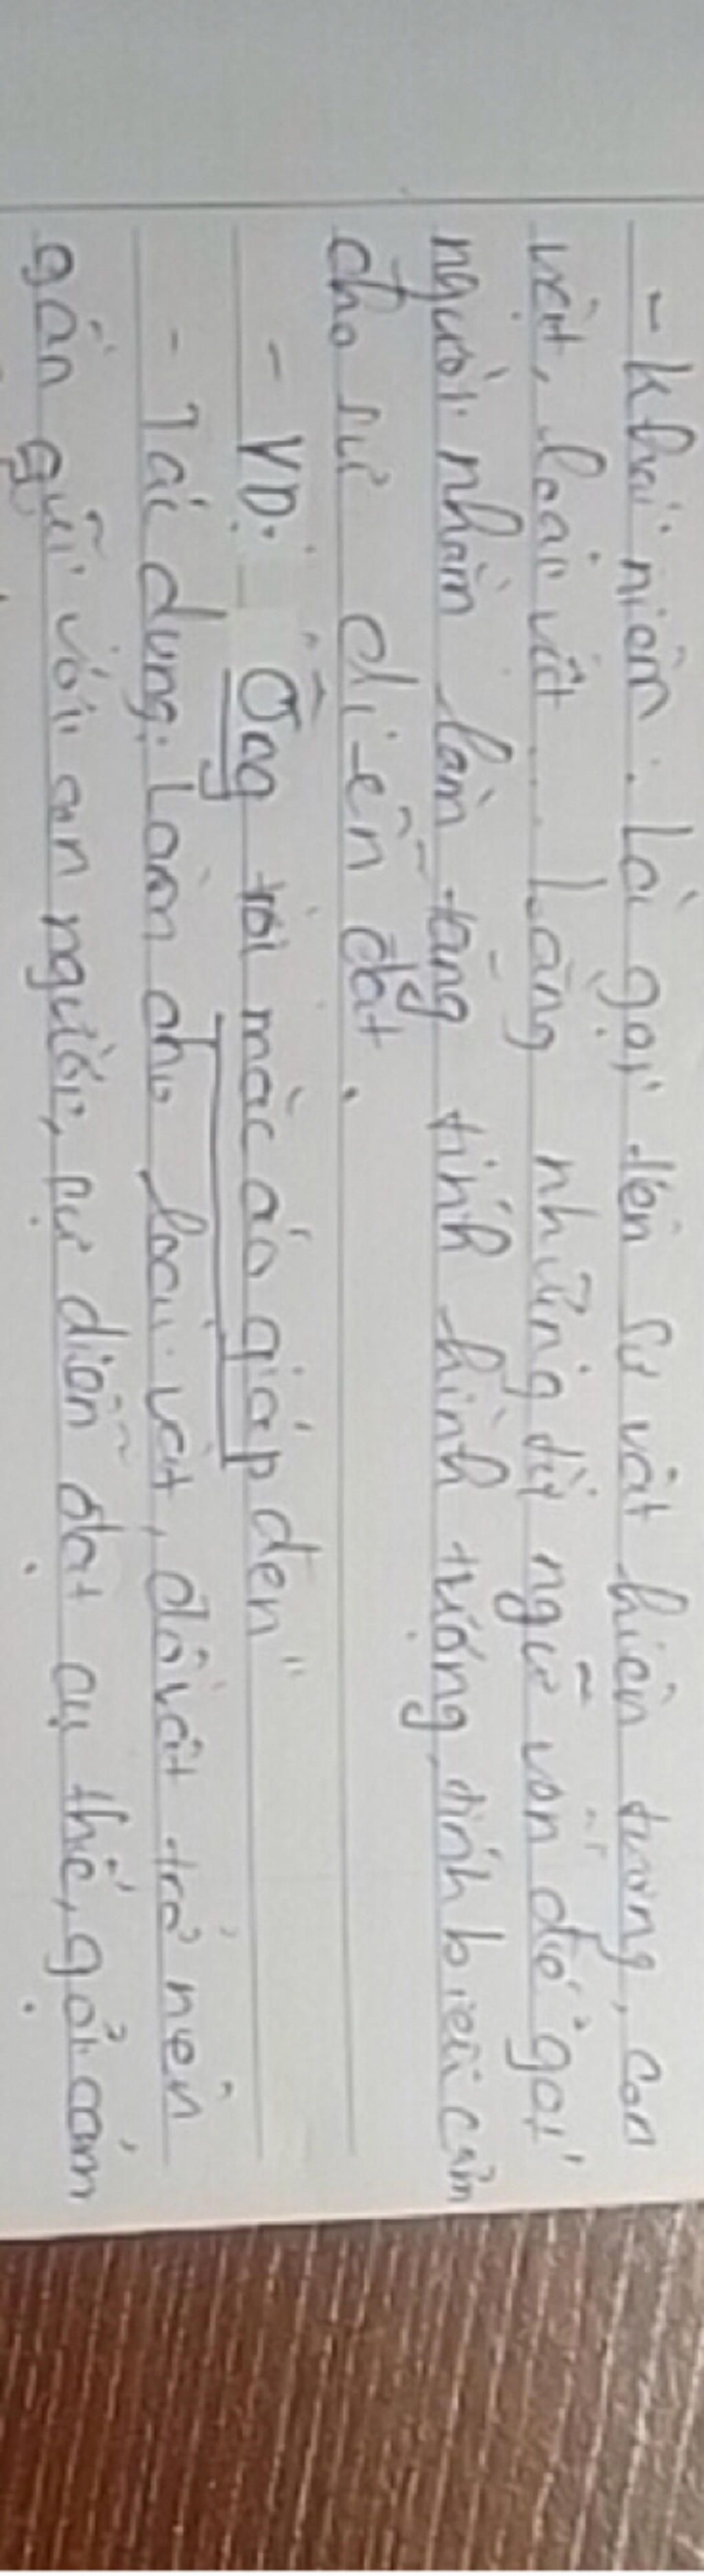 - Khái niệm: Là gọi tên sự vật hiện tượng, con
vật, loài vật... bằng những từ ngữ vốn để gọi
người nhằm làm tăng tính hình tượng, tính biểu cảm
cho sự diễn đạt.
- VD: "Ông trời mặc áo giáp đen"
- Tác dụng: Làm cho loài vật, đồ vật trở nên
gần gũi với con người, sự diễn đạt cụ thể, gợi cảm